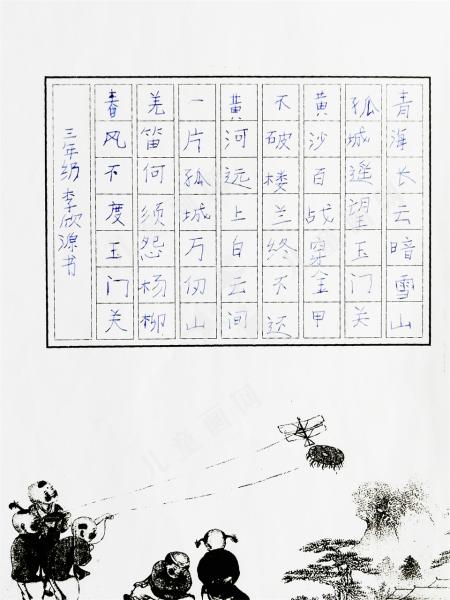 青海长云暗雪山
孤城遥望玉门关
黄沙百战穿金甲
不破楼兰终不还
黄河远上白云间
一片孤城万仞山
羌笛何须怨杨柳
春风不度玉门关
三年级 李欣源书
儿童画网